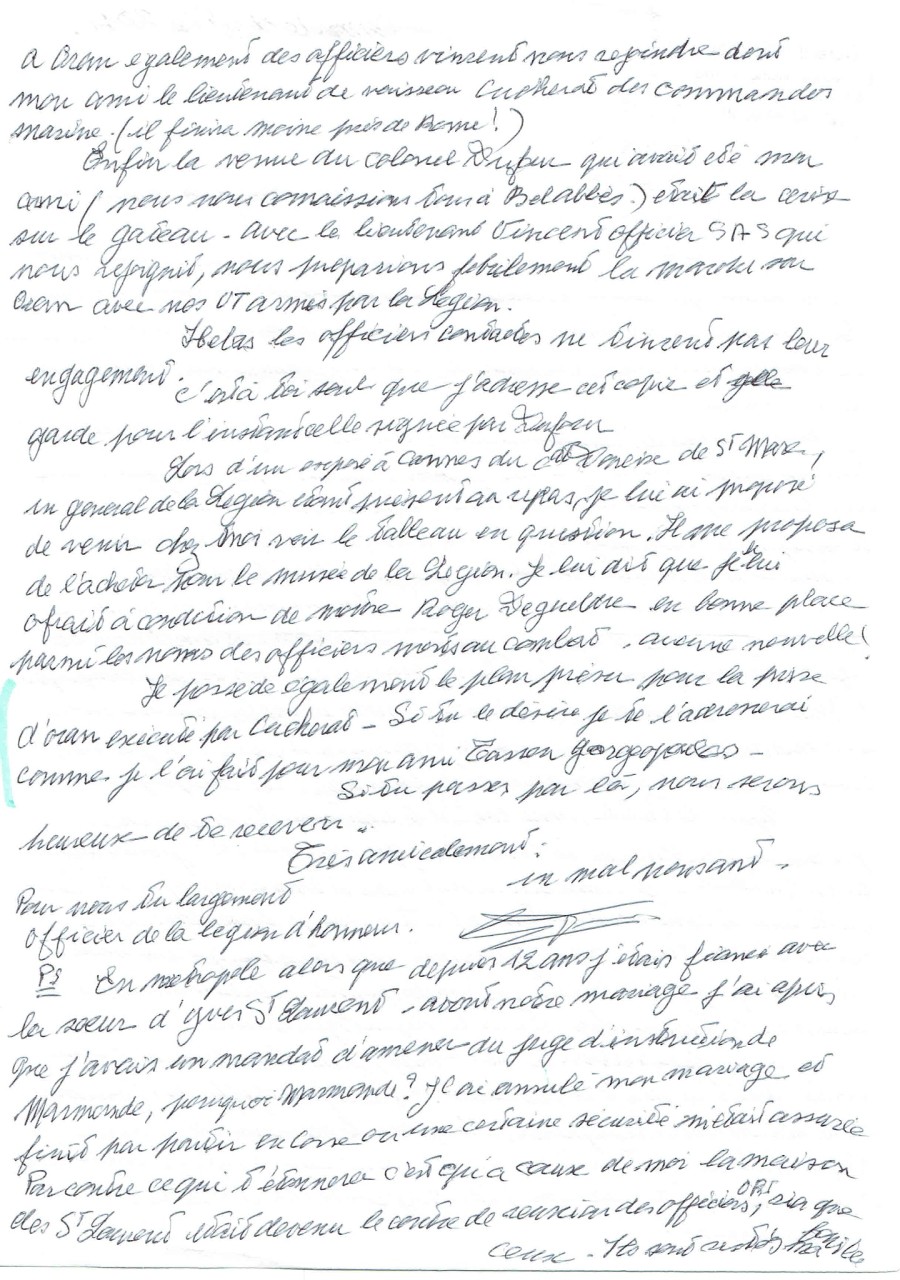 a Oran egalement des officiers vinrent nous rejoindre dont
mon ami le lieutenant de vaisseau Cacherat des commandos
marine. (il finira moine près de Rome!)
Enfin la venue du colonel Dufour qui avait été mon
ami (nous nous connaissions tous à Belabbès) était la cerise
sur le gateau - avec le lieutenant Vincent officier SAS qui
nous rejoignit, nous preparions febrilement la marche sur
Oran avec nos UT armés par la Légion.
Helas les officiers contactés ne tinrent pas leur
engagement.
c'est à toi seul que j'adresse cet copie et
garde pour l'instant celle signée par Dufour
Lors d'un exposé à Cannes du de St Marc,
un general de la Légion étant présent au repas, je lui ai proposé
de venir chez moi voir le tableau en question. Il me proposa
de l'acheter pour le musée de la Légion. Je lui dit que je le lui
ofrait à condition de mettre Roger Degueldre en bonne place
parmi les noms des officiers morts au combat - aucune nouvelle!
Je possède également le plan prévu pour la prise
d'oran executé par Cacherat - Si tu le désire je te l'adresserai
comme je l'ai fait pour mon ami Tasson Georgopoulos -
Si tu passes par là, nous serons
heureux de te recevoir.
Très amicalement:
un mal pensant -
Pour nous tu largement
officier de la légion d'honneur.
PS En métropole alors que depuis 12 ans j'étais fiancé avec
la soeur d'yves St Laurent - avant notre mariage j'ai apris
que j'avais un mandat d'amener du juge d'instruction de
Marmande, pourquoi Marmande? J'ai annulé mon mariage et
finit par partir en Corse ou une certaine sécurité m'était assurée
Par contre ce qui t'étonnera c'est qu'a cause de moi la maison
des St Laurent était devenu le centre de reunion des officiers, que
ceux - Ils sont restés